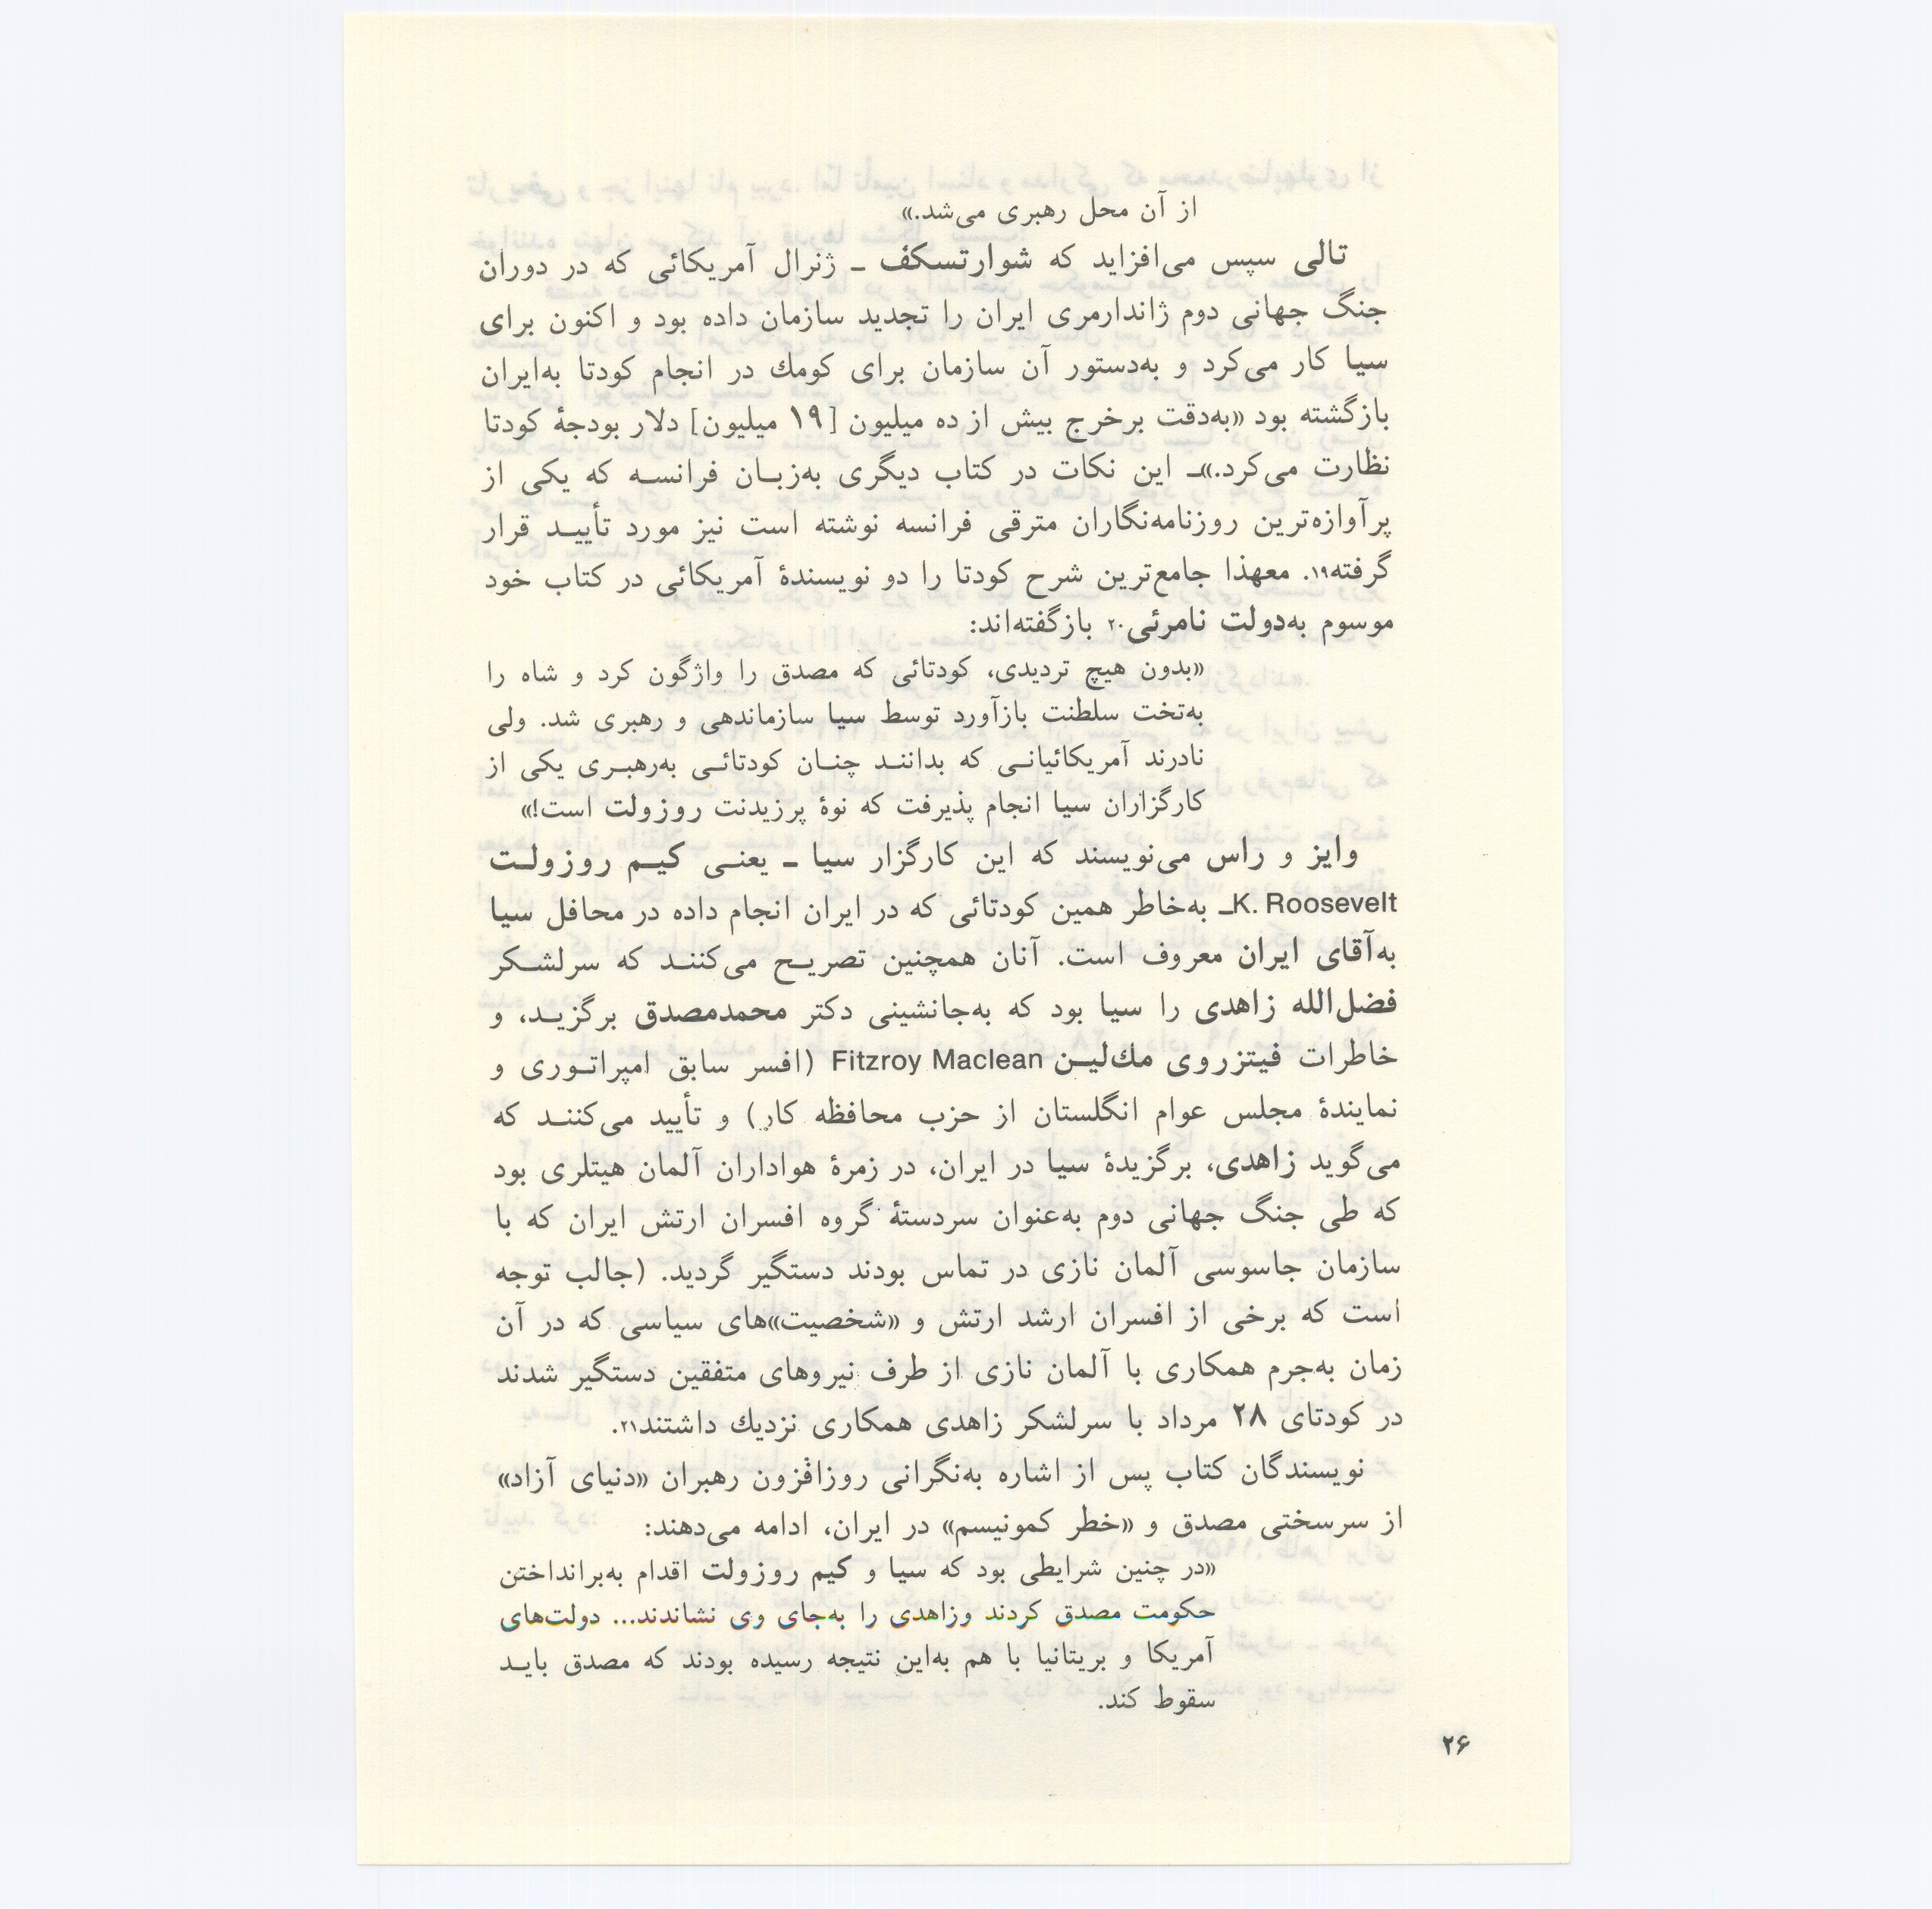 از آن محل رهبری می‌شد.»
تالی سپس می‌افزاید که شوارتسکف ـ ژنرال آمریکائی که در دوران
جنگ جهانی دوم ژاندارمری ایران را تجدید سازمان داده بود و اکنون برای
سیا کار می‌کرد و به‌دستور آن سازمان برای کومك در انجام کودتا به‌ایران
بازگشته بود «به‌دقت برخرج بیش از ده میلیون [۱۹ میلیون] دلار بودجهٔ کودتا
نظارت می‌کرد.»ـ این نکات در کتاب دیگری به‌زبـان فرانسـه که یکی از
پرآوازه‌ترین روزنامه‌نگاران مترقی فرانسه نوشته است نیز مورد تأییـد قرار
گرفته۱۹. معهذا جامع‌ترین شرح کودتا را دو نویسندهٔ آمریکائی در کتاب خود
موسوم به‌دولت نامرئی۲۰ بازگفته‌اند:
«بدون هیچ تردیدی، کودتائی که مصدق را واژگون کرد و شاه را
به‌تخت سلطنت بازآورد توسط سیا سازماندهی و رهبری شد. ولی
نادرند آمریکائیانـی که بداننـد چنـان کودتائـی به‌رهبـری یکی از
کارگزاران سیا انجام پذیرفت که نوهٔ پرزیدنت روزولت است!»
وایز و راس می‌نویسند که این کارگزار سیا ـ یعنـی کیـم روزولـت
K. Rooseveltـ به‌خاطر همین کودتائی که در ایران انجام داده در محافل سیا
به‌آقای ایران معروف است. آنان همچنین تصریـح می‌کننـد که سرلشـکر
فضل‌الله زاهدی را سیا بود که به‌جانشینی دکتر محمدمصدق برگزیـد، و
خاطرات فیتزروی مك‌لیـن Fitzroy Maclean (افسر سابق امپراتـوری و
نمایندهٔ مجلس عوام انگلستان از حزب محافظه کار) و تأیید می‌کننـد که
می‌گوید زاهدی، برگزیدهٔ سیا در ایران، در زمرهٔ هواداران آلمان هیتلری بود
که طی جنگ جهانی دوم به‌عنوان سردستهٔ گروه افسران ارتش ایران که با
سازمان جاسوسی آلمان نازی در تماس بودند دستگیر گردید. (جالب توجه
است که برخی از افسران ارشد ارتش و «شخصیت»های سیاسی که در آن
زمان به‌جرم همکاری با آلمان نازی از طرف نیروهای متفقین دستگیر شدند
در کودتای ۲۸ مرداد با سرلشکر زاهدی همکاری نزدیك داشتند۲۱.
نویسندگان کتاب پس از اشاره به‌نگرانی روزافزون رهبران «دنیای آزاد»
از سرسختی مصدق و «خطر کمونیسم» در ایران، ادامه می‌دهند:
«در چنین شرایطی بود که سیا و کیم روزولت اقدام به‌برانداختن
حکومت مصدق کردند وزاهدی را به‌جای وی نشاندند... دولت‌های
آمریکا و بریتانیا با هم به‌این نتیجه رسیده بودند که مصدق بایـد
سقوط کند.
۲۶